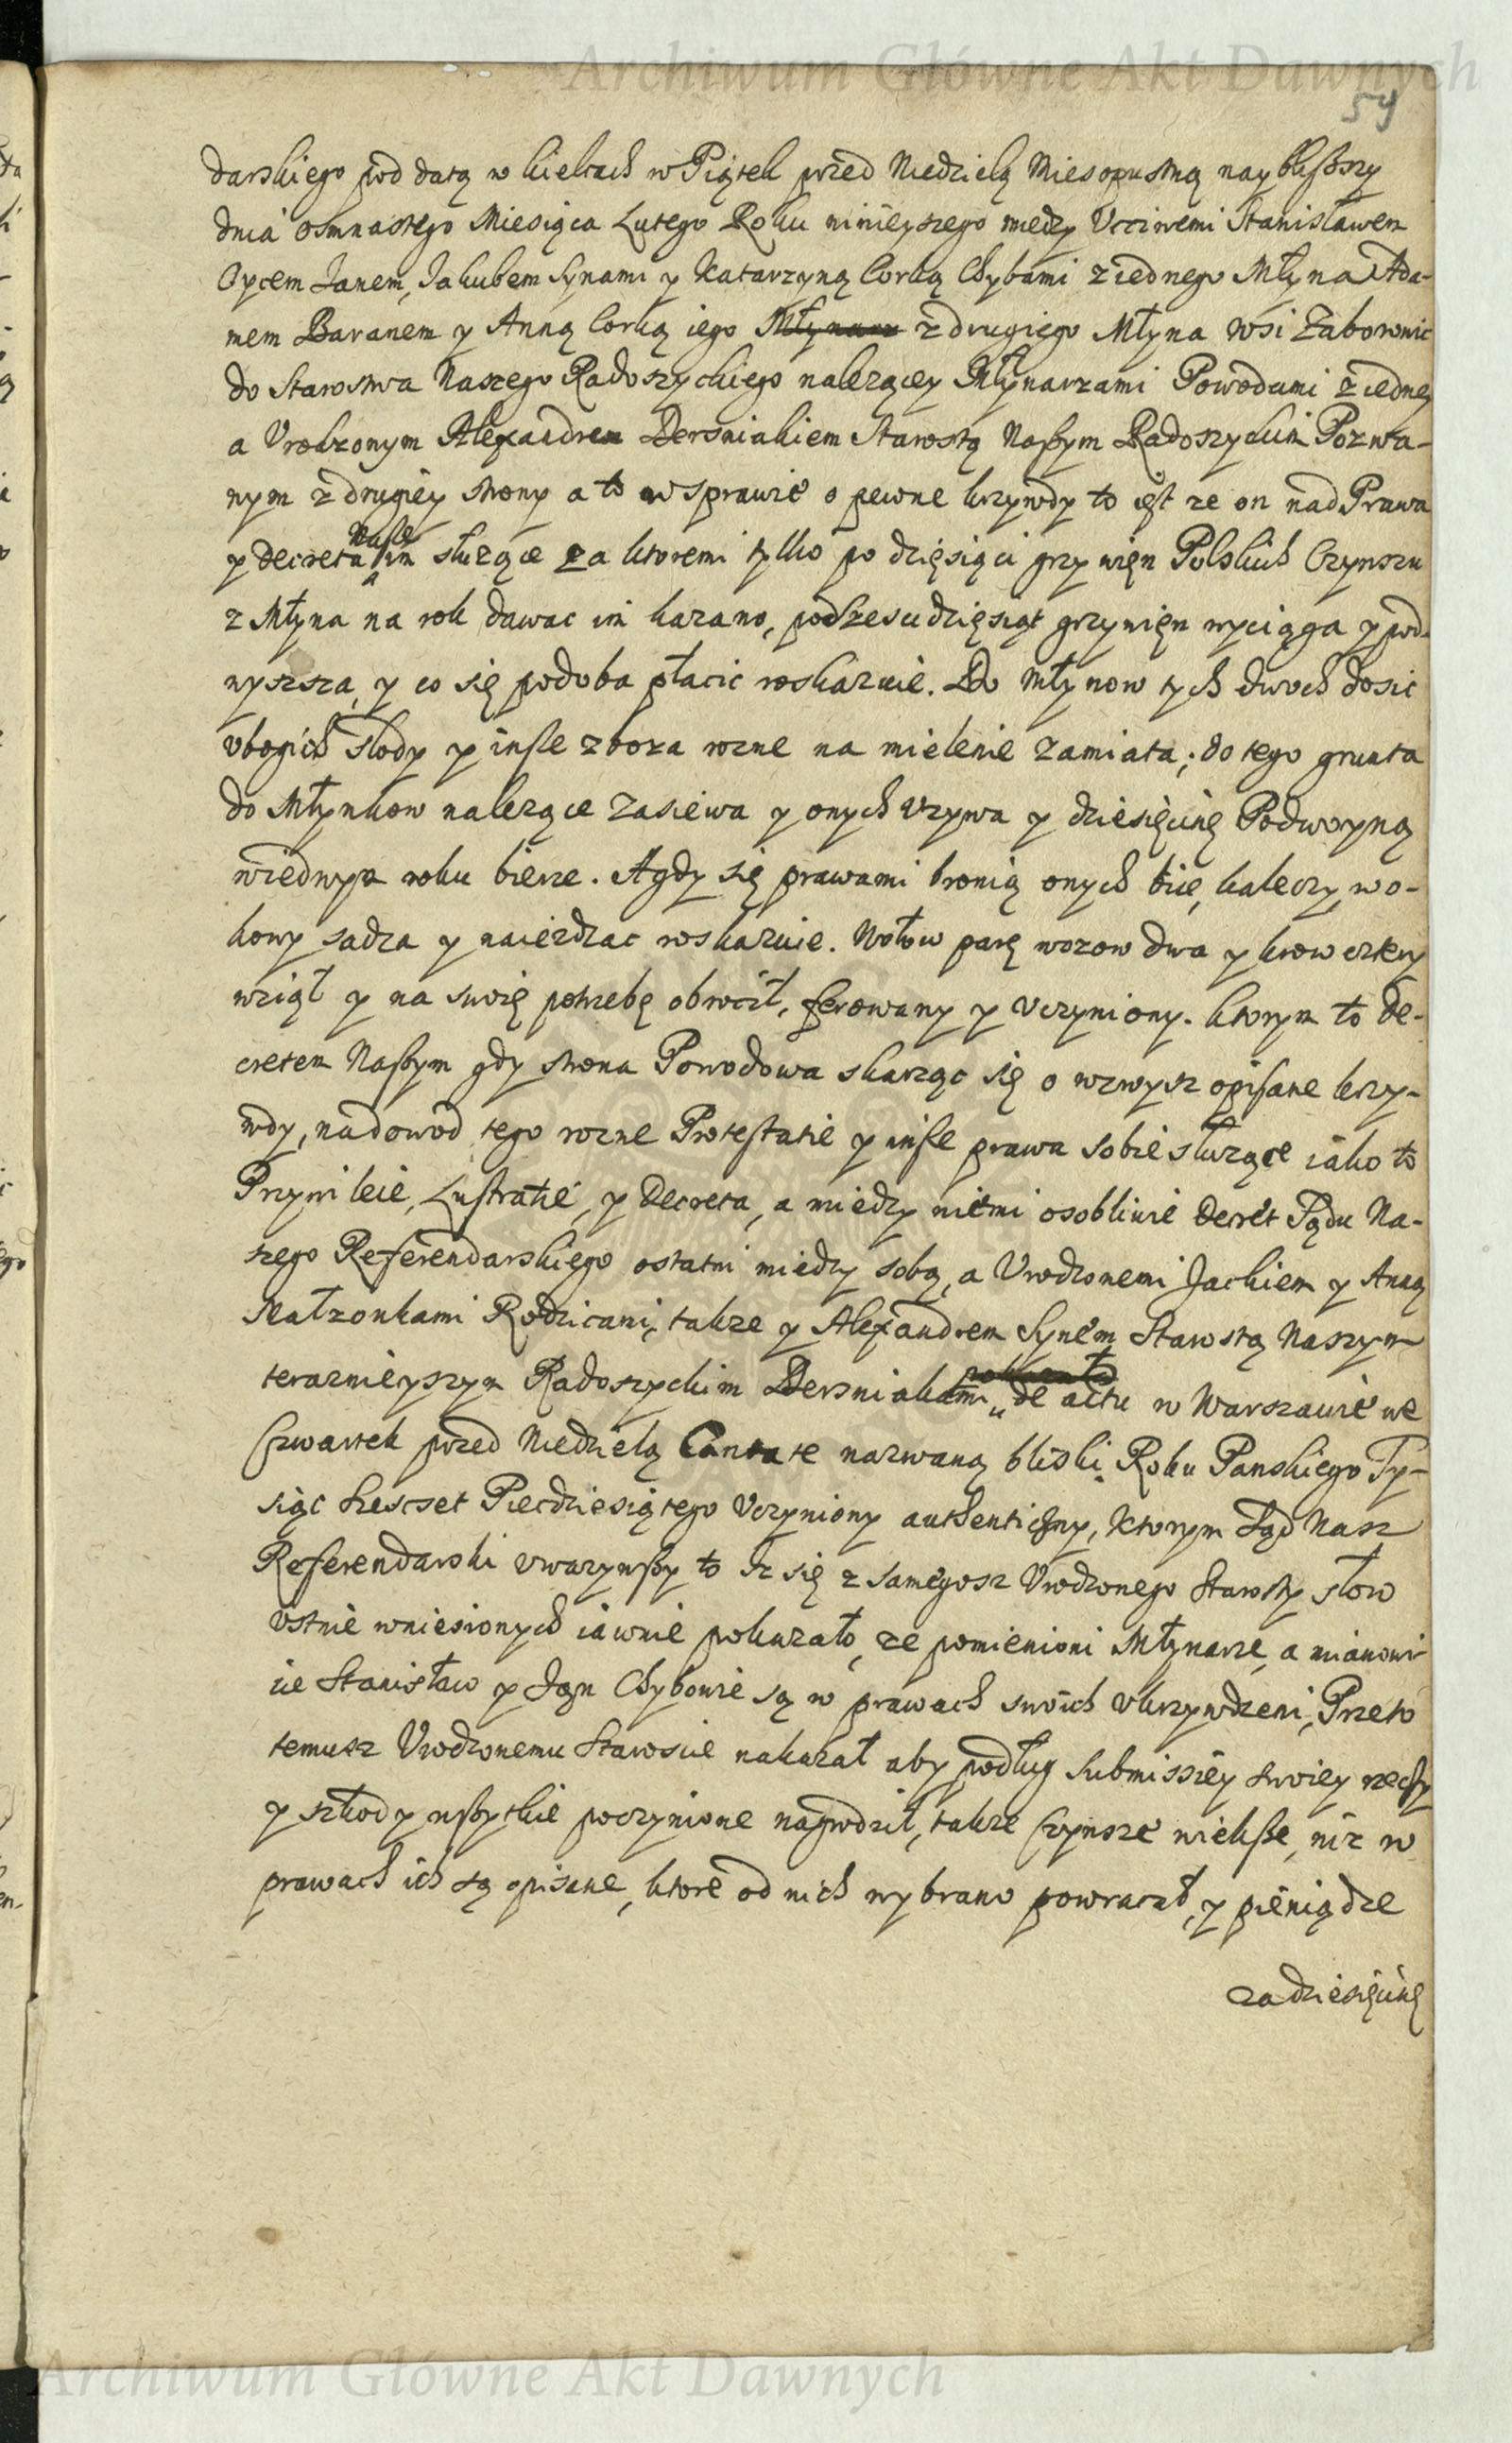 Archiwum Główne Akt Dawnych
59
darskiego pod datą w kielcach w Piątek przed Niedzielą Miesopustną naybliszszy
dnia osmnastego Miesiąca Lutego Roku ninieyszego między Ucciwemi Stanisławem
Oycem Janem, Jakubem synami y Katarzyną Corką Chybami z iednego Młyna Ada-
mem Baranem y Anną Corką iego Młynarz z drugiego Młyna wsi Zaborowic
do Starostwa Naszego Radoszyckiego nalezącey Młynarzami Powodami z iedney
a Urodzonym Alexandrem Dersniakiem Starostą Naszym Radoszyckim Pozwa-
nym z drugiey strony a to w sprawie o pewne krzywdy to iest ze on nad Prawa
Nasze
y Decreta im słuzące za ktoremi tylko po dzięsiąci grzywięn Polskich Czynszu
z Młyna na rok dawac im kazano, po szescudzięsiąt grzywięn wyciąga y pod-
wyszsza, y co się podoba płacic roskazuie. Do Młynow tych dwoch dosic
ubogich słody y insze zboza rozne na mielenie zamiata; do tego grunta
do Młynkow nalezące zasiewa y onych uzywa y dziesięcinę Podwoyną
w iednym roku bierze. A gdy się prawami bronią onych bie, kaleczy, wo-
kowy sadza y naiezdzac roskazuie. Wołow parę wozow dwa y krow cztery
wziął y na swoię potrzebę obrocił, ferowany y uczyniony. ktorym to de-
cretem Naszym gdy strona Powodowa skarząc się o wzwysz opisane krzy-
wdy, na dowod tego rozne Protestatie y insze prawa sobie słuzące iako to
Przywileie, Lustratie, y Decreta, a między niemi osobliwie Decret Sądu Na-
szego Referendarskiego ostatni między sobą, a Urodzonemi Jackiem y Anną
Małzonkami Rodzicami, takze y Alexandrem Synem Starostą Naszym
teraznieyszym Radoszyckim Dersniakami de actu w Warszawie we
Czwartek przed Niedzielą Cantate nazwaną bliski Roku Panskiego Ty-
siąc szescset Piecdziesiątego Uczyniony authentichny, ktorym Sąd Nasz
Referendarski uwazywszy to Iz się z samegosz Urodzonego Starosty słow
ustnie wniesionych iawnie pokazało, ze pomienioni Młynarze, a mianowi-
cie Stanisław y Jan Chybowie są w prawach swoich ukrzywdzeni, Przeto
temusz Urodzonemu Staroscie nakazał aby podług submissiey swoiey rzeczy
y szkody wszytkie poczynione nagrodził, takze Czynsze wieksze, niz w
prawach ich są opisane, ktore od nich wybrano powracał, y pieniądze
za dziesięcinę
Archiwum Główne Akt Dawnych